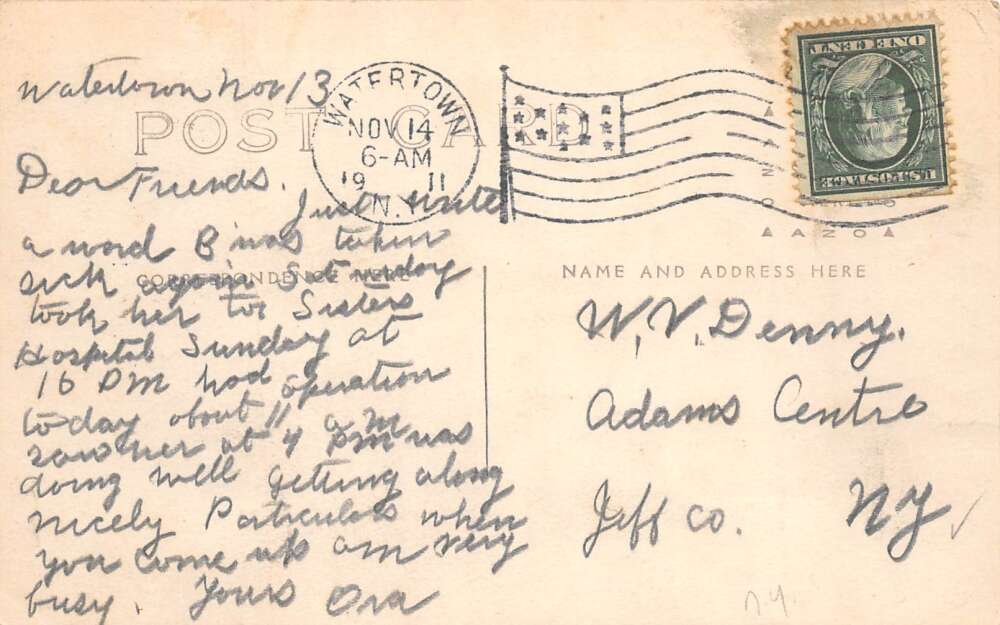 Watertown Nov 13
POST CARD
WATERTOWN
NOV 14
6-AM
19 11
N.Y.
ONE CENT
U.S. POSTAGE
AZO
Dear Friends.
Just write
a word B was taken
sick again Saturday
CORRESPONDENCE HERE
took her to Sisters
Hospital Sunday at
16 PM had operation
today about 11 a m
saw her at 4 PM was
doing well getting along
nicely Particulars when
you come up am very
busy. Yours Ora
NAME AND ADDRESS HERE
W. V. Denny.
Adams Centre
Jeff Co. NY
n.y.